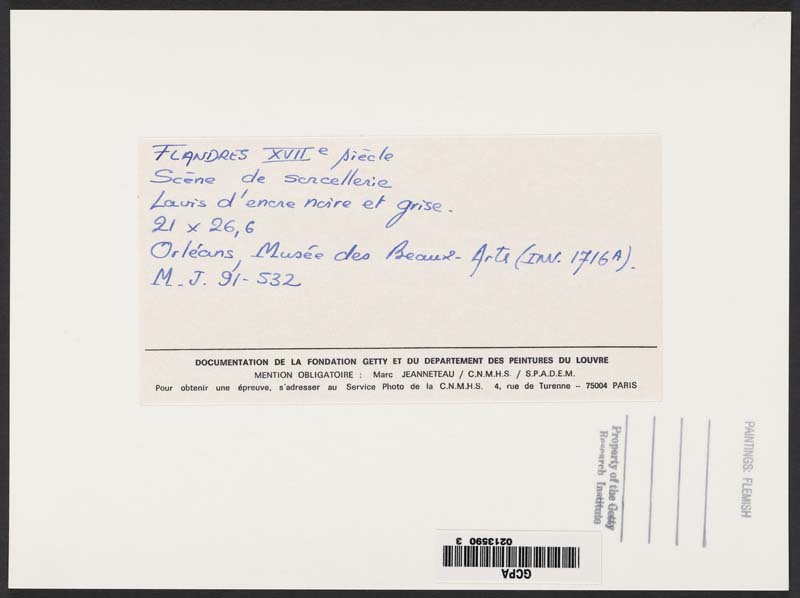 FLANDRES XVIIe siècle
Scène de sorcellerie
Lavis d'encre noire et grise.
21 x 26,6
Orléans, Musée des Beaux-Arts (INV. 1716A).
M.J. 91-532
DOCUMENTATION DE LA FONDATION GETTY ET DU DEPARTEMENT DES PEINTURES DU LOUVRE
MENTION OBLIGATOIRE : Marc JEANNETEAU / C.N.M.H.S. / S.P.A.D.E.M.
Pour obtenir une épreuve, s'adresser au Service Photo de la C.N.M.H.S. 4, rue de Turenne -- 75004 PARIS
PAINTINGS: FLEMISH
Property of the Getty
Research Institute
GCPA
0213590 3